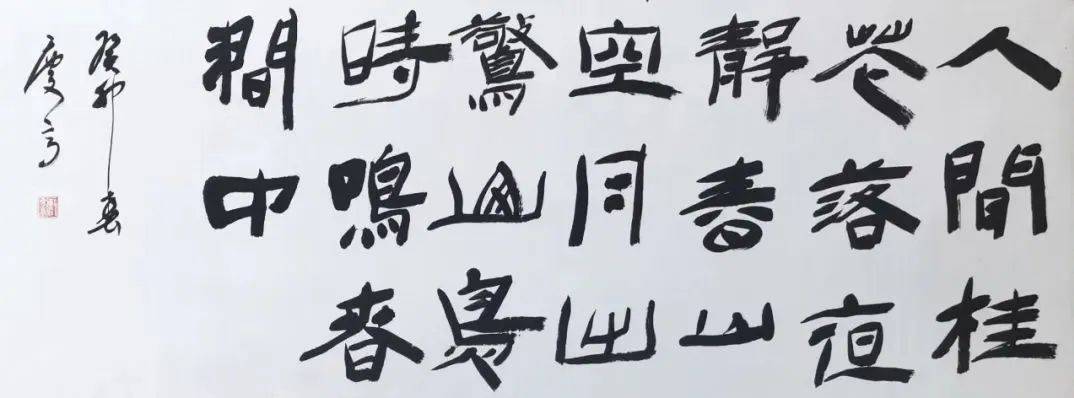 人間桂
花落夜
靜春山
空月出
驚山鳥
時鳴春
澗中
癸卯春